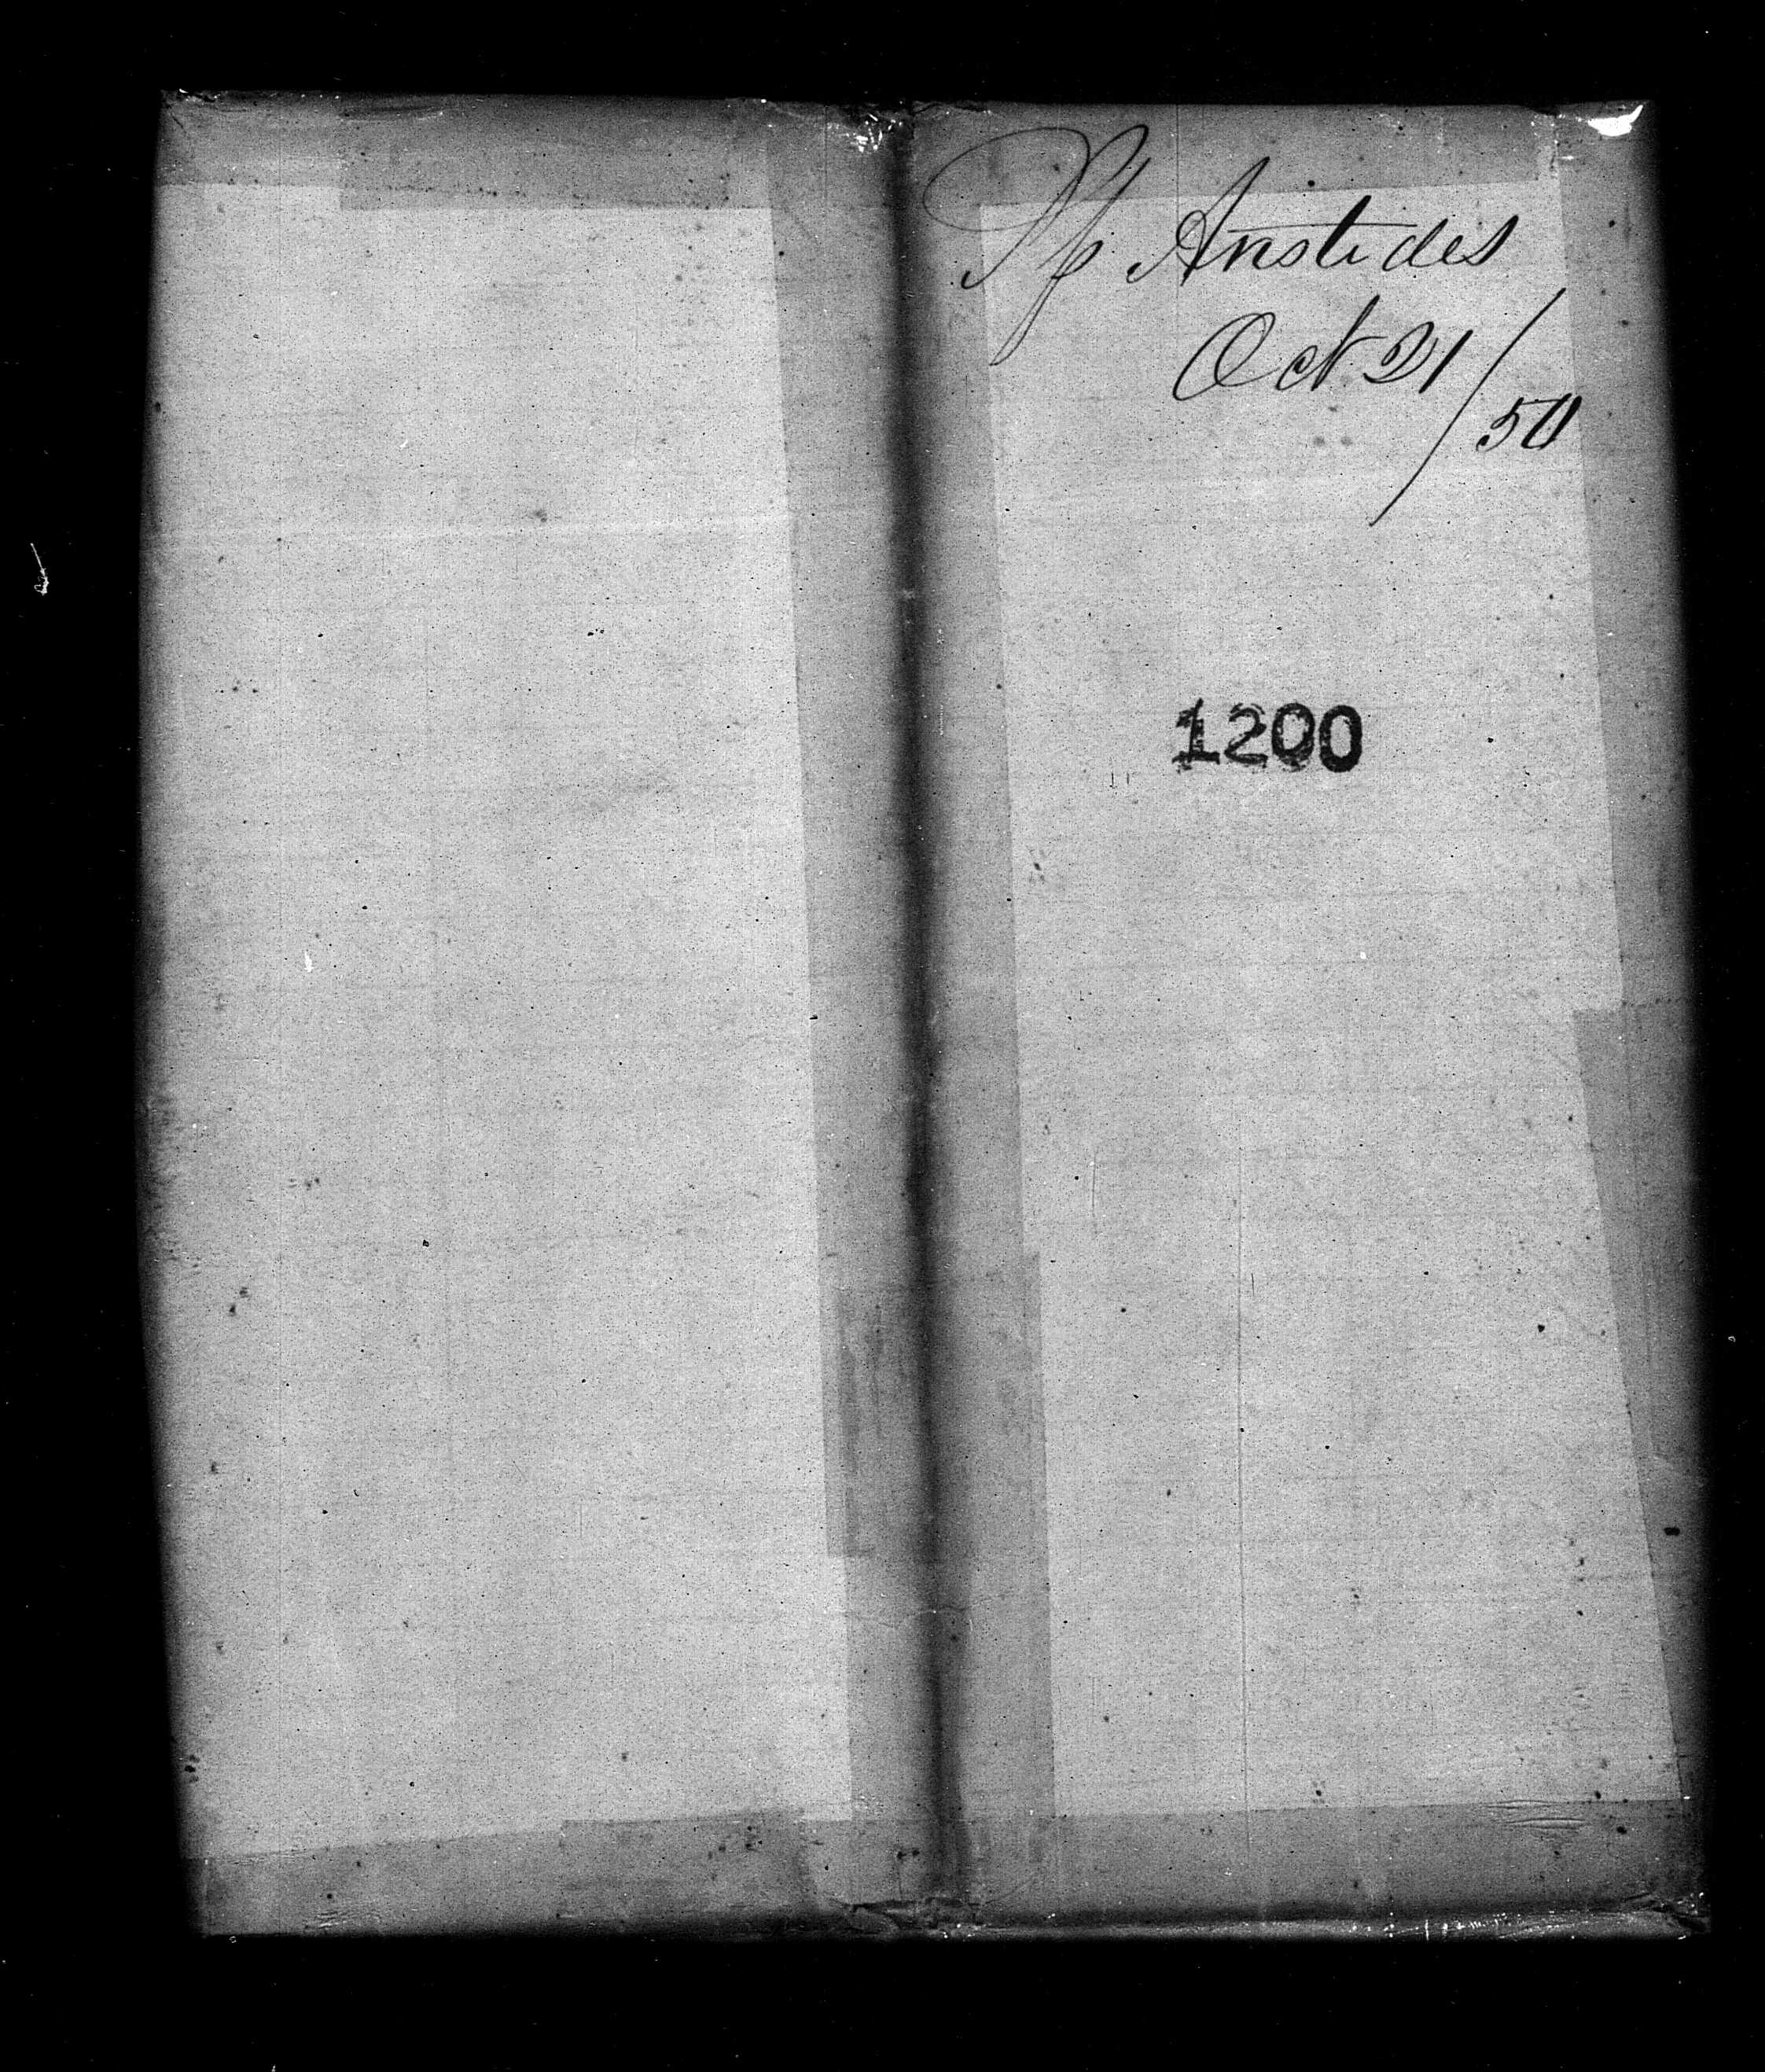 Sp Aristides
Oct 21/50
1200